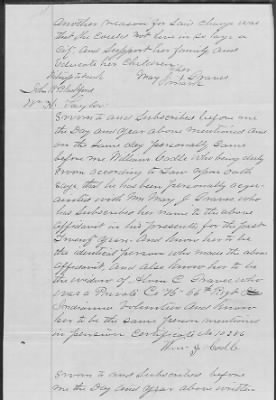 Another reason for said change was
that she could not live in so large a
City and support her family and
Educate her children
her
Witnesses to mark May J X Graves
mark
John
Wm H. Taylor
Sworn to and Subscribed before me
the Day and Year above mentioned and
on the same day personally Came
before me William Codle who being duly
sworn according to Law upon oath
Says that he has been personally acqu-
ainted with Mrs May J. Graves who
has Subscribed her name to the above
affidavit in his presence for the past
Twenty years and Know her to be
the identical person who makes the above
affidavit, and also Know her to be
the widow of C. Graves who
was a Private Co 66th Regt
Indiana Volunteers And Know
her to be the same person mentioned
in pension Certificate No 10286
Wm J Codle
Sworn to and Subscribed before
me the Day and Year above written